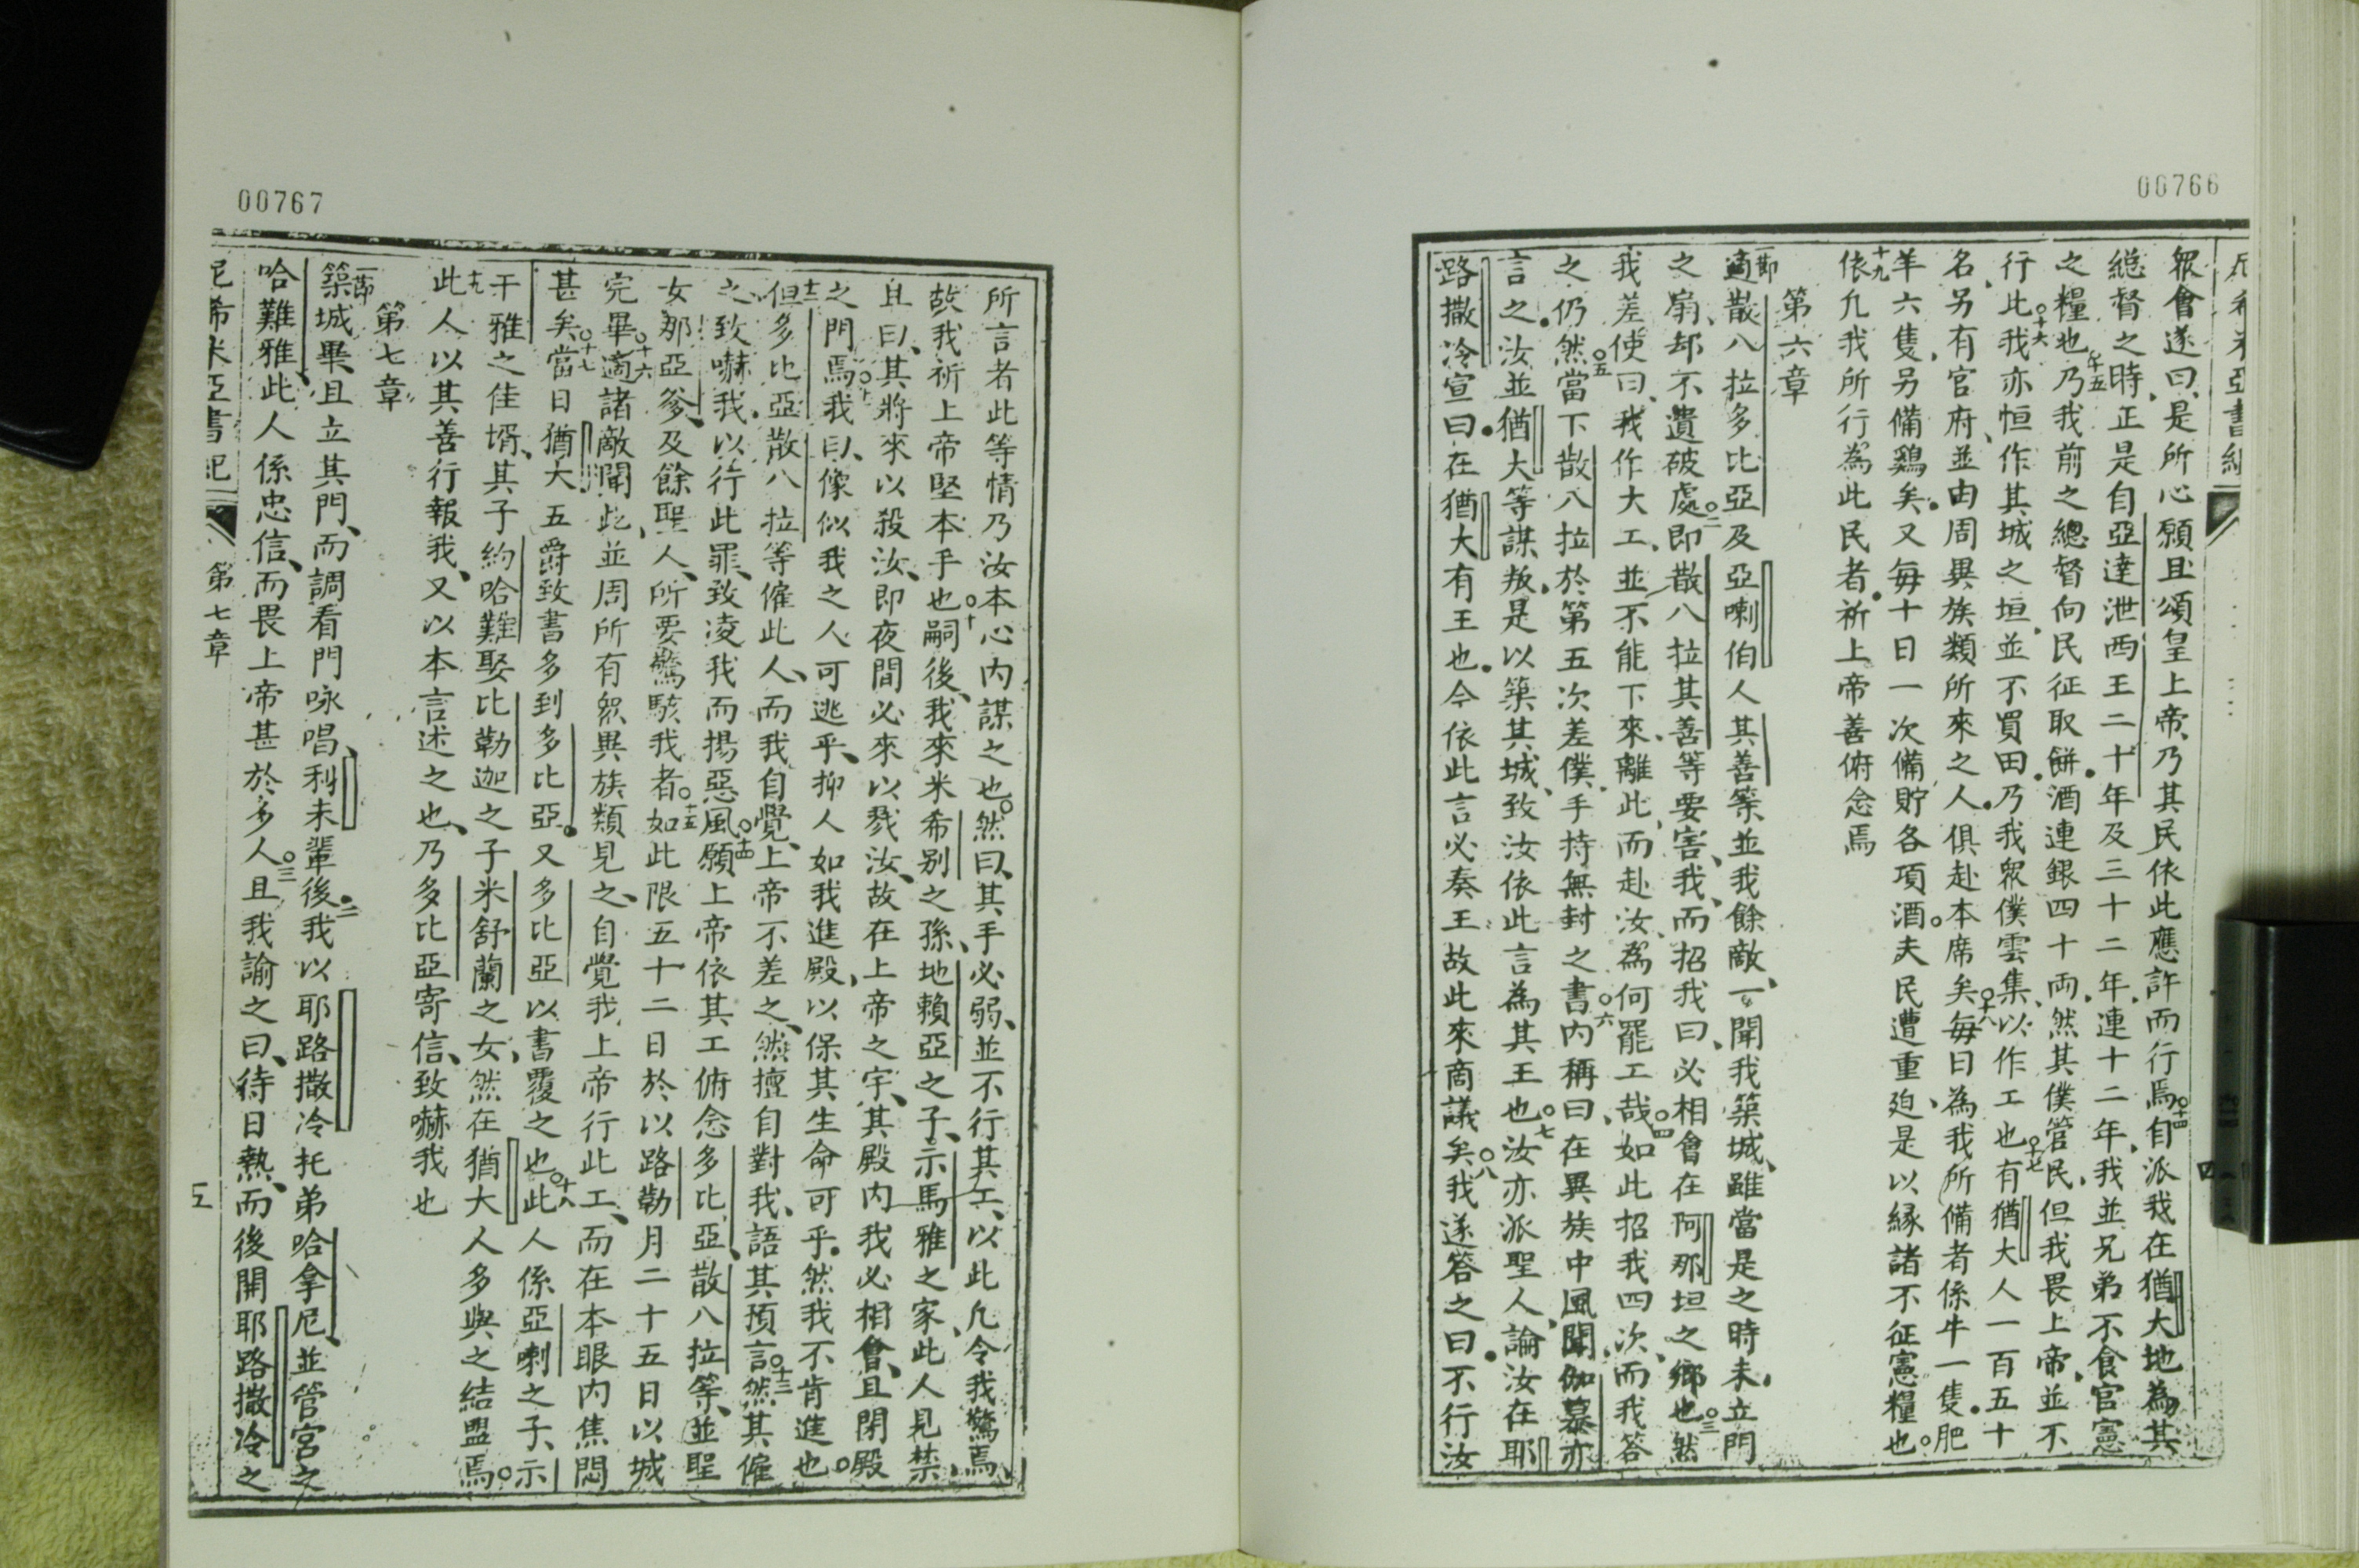 00766
眾會遂曰是所心願且頌皇上帝乃其民依此應許而行焉○十四自派我在猶大地為其
總督之時正是自亞達泄西王二十年及三十二年連十二年我並兄弟不食官憲
之糧也○十五乃我前之總督向民征取餅酒連銀四十兩然其僕管民但我畏上帝並不
行此○十六我亦恒作其城之垣並不買田乃我眾僕雲集以作工也○十七有猶大人一百五十
名另有官府並由周異族類所來之人俱赴本席矣○十八每日為我所備者係牛一隻肥
羊六隻另備鷄矣又每十日一次備貯各項酒夫民遭重迫是以緣諸不征憲糧也○
十九依凢我所行為此民者祈上帝善俯念焉
第六章
一節適散八拉多比亞及亞喇伯人其善等並我餘敵一聞我築城雖當是之時未立門
之扇却不遺破處○二即散八拉其善等要害我而招我曰必相會在阿那坦之鄉也○三然
我差使曰我作大工並不能下來離此而赴汝為何罷工哉○四如此招我四次而我答
之仍然○五當下散八拉於第五次差僕手持無封之書○六內稱曰在異族中風聞伽慕亦
言之汝並猶大等謀叛是以築其城致汝依此言為其王也○七汝亦派聖人論汝在耶
路撒冷宣曰在猶大有王也今依此言必奏王故此來商議矣○八我遂答之曰不行汝
四
00767
所言者此等情乃汝本心內謀之也○然曰其手必弱並不行其工以此凢令我驚焉
故我祈上帝堅本手也○十嗣後我來米希别之孫地賴亞之子示馬雅之家此人見禁
且曰其將來以殺汝即夜間必來以戮汝故在上帝之宇其殿內我必相會且閉殿
之門焉○十一我曰像似我之人可逃乎抑人如我進殿以保其生命可乎然我不肯進也○
十二但多比亞散八拉等僱此人而我自覺上帝不差之然擅自對我語其預言○十三然其僱
之致嚇我以行此罪致凌我而揚惡風○十四願上帝依其工俯念多比亞散八拉等並聖
女那亞爹及餘聖人所要驚駭我者○十五如此限五十二日於以路勒月二十五日以城
完畢○十六適諸敵聞此並周所有眾異族類見之自覺我上帝行此工而在本眼內焦悶
甚矣○十七當日猶大五爵致書多到多比亞又多比亞以書覆之也○十八此人係亞喇之子示
干雅之佳壻其子約哈難娶比勒迦之子米舒蘭之女然在猶大人多與之結盟焉○
十九此人以其善行報我又以本言述之也乃多比亞寄信致嚇我也
第七章
一節築城畢且立其門而調看門咏唱利未輩後○二我以耶路撒冷托弟哈拿尼並管宮之
哈難雅此人係忠信而畏上帝甚於多人○三且我諭之曰待日熱而後開耶路撒冷之
尼希米亞書記 第七章 五